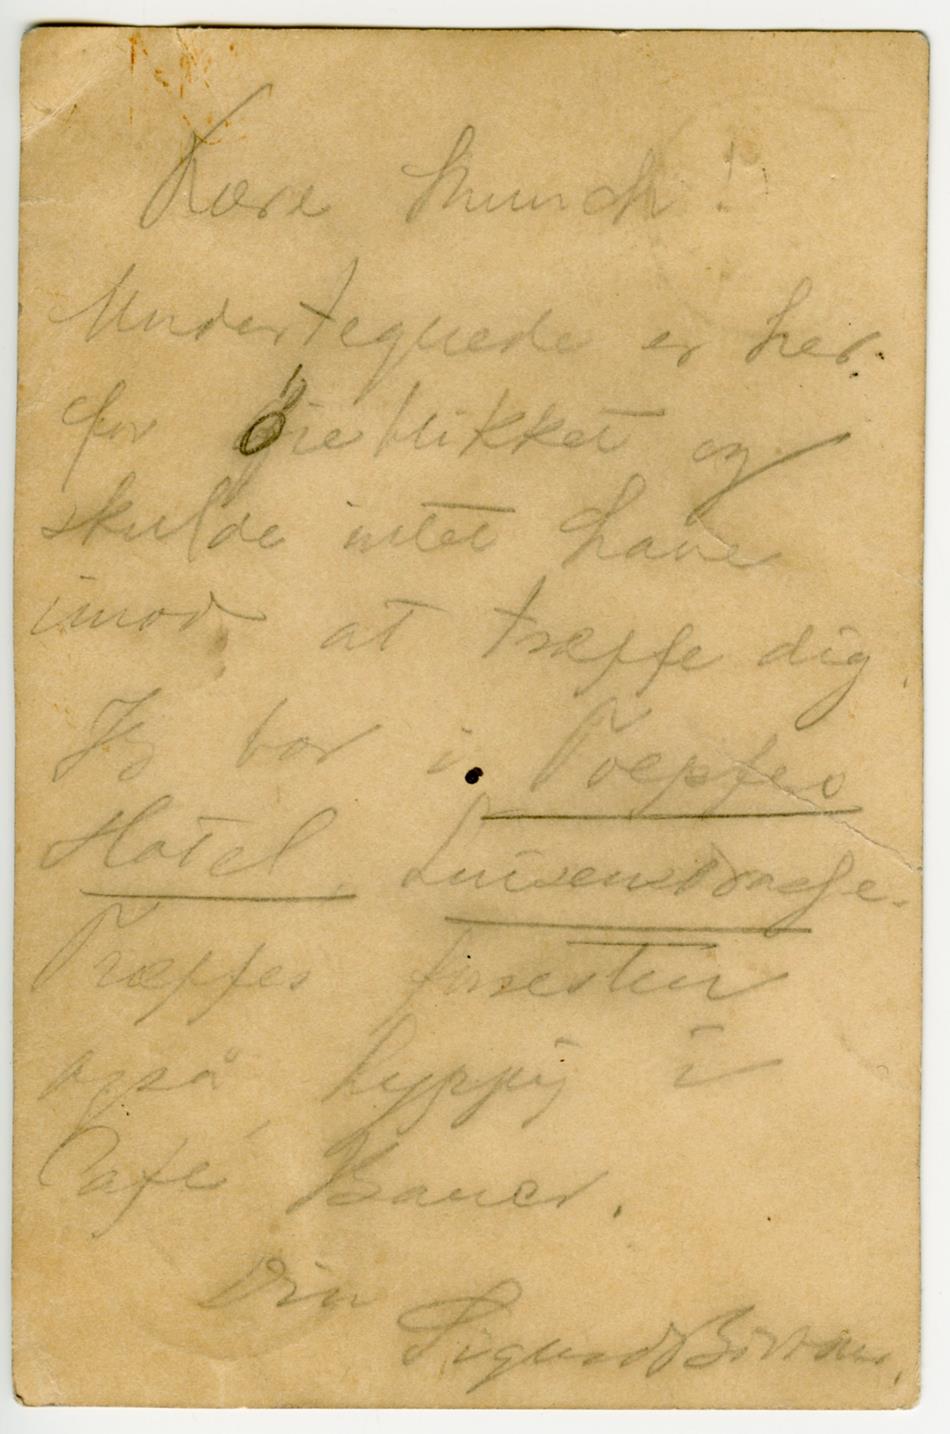 Kære Munch!
Undertegnede er her
for øieblikket og
skulde intet have
imod at træffe dig.
Jeg bor i Toepfes
Hotel, Luisenstrasse.
Træffes forresten
også hyppig i
Café Bauer.
Din
Sigurd